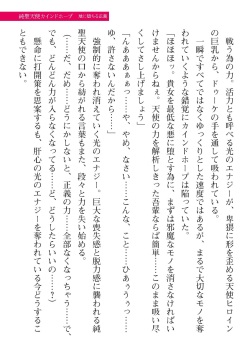 純聖天使カインドホープ 闇に堕ちる正義
戦う為の力、活力とも呼べる光のエナジーが、卑猥に形を歪める天使ヒロイン
の巨乳から、ドゥークの手を通して奪われている。
一瞬ですべてではなくゆっくりとした速度ではあるが、まるで大切なモノを奪
われていくような錯覚にカインドホープは陥っていた。
「ほほほっ。貴女を最低な悪に堕とす為に、まずは邪魔なモノを消さなければい
けませんからねぇ。天使の力を解析しきった吾輩ならば簡単……このまま吸い尽
くしてさし上げましょう」
「んあああぁぁっ……や、やめ、なさい……こんな、こと……ひあぅぅっ……
ゆ、許さない、んだから……」
強制的に奪われ消えていく光のエナジー。巨大な喪失感と脱力感に襲われる純
聖天使の口から紡がれる言葉もまた、段々と力を失い始める。
（だ、だめ……どうにかしないと、正義の力……全部なくなっちゃう……で、
でも、どんどん力が入らなくなってる……ど、どうしたらいいの……っ！）
懸命に打開策を思案するも、肝心の光のエナジーを奪われている今どうするこ
ともできない。